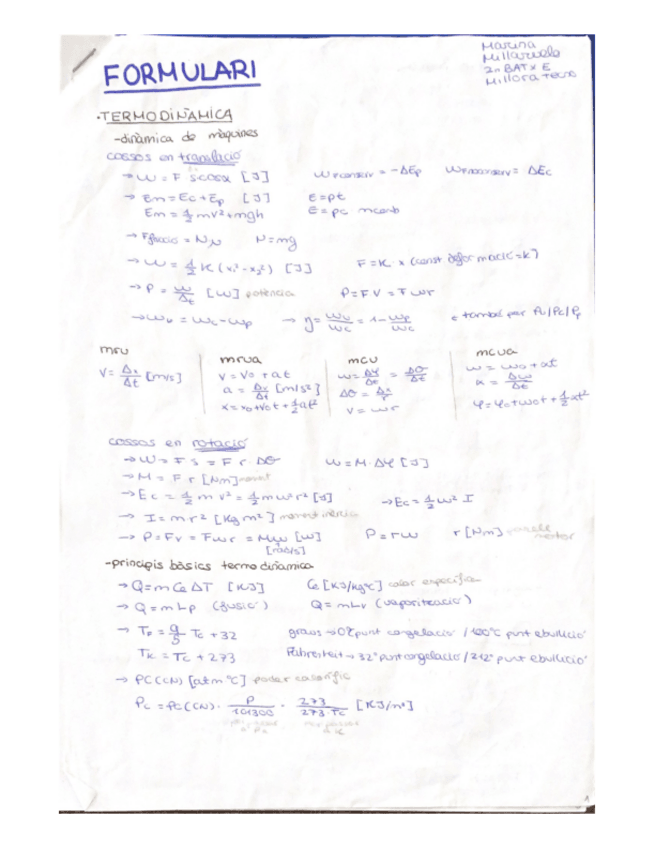 Marina
Millaruelo
2n BATX E
Millora tecno
FORMULARI
·TERMODINÀMICA
-dinàmica de màquines
cossos en translació
→ W = F s cosα [J]   WFconserv = -ΔEp   WFnoconserv = ΔEc
→ Em = Ec + Ep [J]   E = pt
Em = 1/2 mv² + mgh   E = pc · mcomb
→ Ffricció = Nμ   N = mg
→ W = 1/2 K (x₁² - x₂²) [J]   F = K · x (const deformació = k)
→ P = W/Δt [W] potència   P = F V = F wr
→ Wu = Wc - Wp   → η = Wu/Wc = 1 - Wp/Wc   també per Pu/Pc/Pp
mru   mrua   mcu   mcua
V = Δx/Δt [m/s]   V = V0 + at   w = Δφ/Δt = Δθ/Δt   w = w0 + αt
a = Δv/Δt [m/s²]   α = Δw/Δt
x = x0 + V0t + 1/2 at²   v = wr   φ = φ0 + w0t + 1/2 αt²
cossos en rotació
→ W = F s = F r Δθ   W = M · Δφ [J]
→ M = F r [Nm] moment
→ Ec = 1/2 m v² = 1/2 m w² r² [J]   → Ec = 1/2 w² I
→ I = m r² [Kg m²] moment inèrcia
→ P = Fv = Fwr = Mw [W]   P = Γw   Γ [Nm] parell motor
[rad/s]
-principis bàsics termodinàmica
→ Q = m Ce ΔT [KJ]   Ce [KJ/kgºC] calor específica
→ Q = m Lf (fusió)   Q = m Lv (vaporització)
→ TF = 9/5 Tc + 32   graus → 0ºC punt congelació / 100ºC punt ebullició
TK = Tc + 273   Fahrenheit → 32º punt congelació / 212º punt ebullició
→ PC (CN) [atm ºC] poder calorífic
Pc = Pc (CN) · P/101300 · 273/273+Tc [KJ/m³]
1